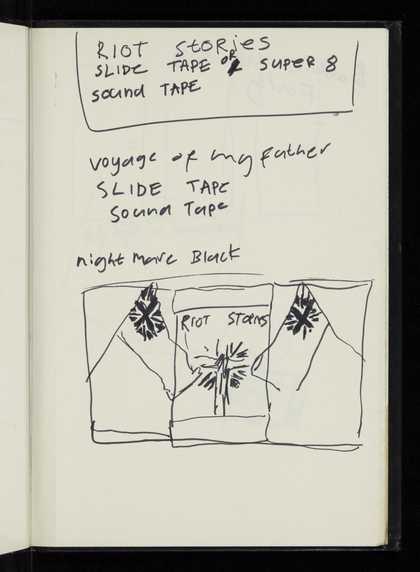 RIOT Stories
SLIDE TAPE OR SUPER 8
sound TAPE
voyage of my father
SLIDE TAPE
Sound Tape
night mare Black
RIOT STORIES